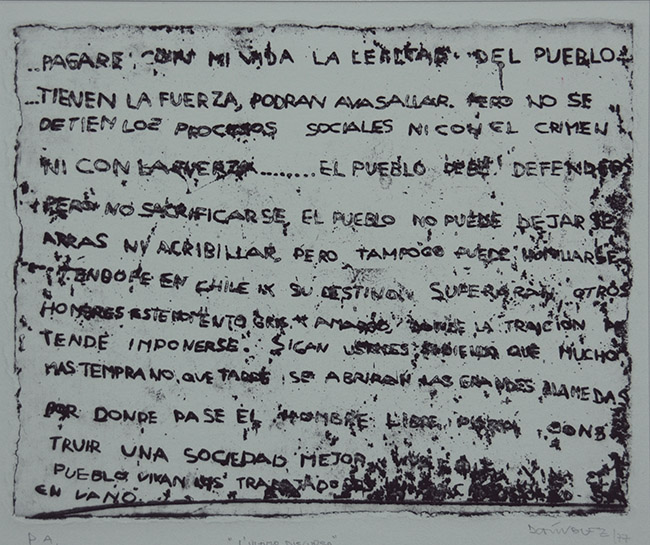 ..PAGARE CON MI VIDA LA LEALTAD DEL PUEBLO
...TIENEN LA FUERZA, PODRAN AVASALLAR. PERO NO SE
DETIEN LOS PROCESOS SOCIALES NI CON EL CRIMEN
NI CON LA FUERZA........EL PUEBLO DEBE DEFENDERS
PERO NO SACRIFICARSE, EL PUEBLO NO PUEDE DEJARSE
ARRAS NI ACRIBILLAR, PERO TAMPOCO PUEDE HUMILLARSE
TENGO FE EN CHILE Y SU DESTINO. SUPERARAN OTROS
HOMBRES ESTE MOMENTO GRIS Y AMARGO, DONDE LA TRAICION PRE
TENDE IMPONERSE. SIGAN USTEDES SABIENDO QUE MUCHO
MAS TEMPRANO, QUE TARDE SE ABRIRAN LAS GRANDES ALAMEDAS
POR DONDE PASE EL HOMBRE LIBRE PARA CONS
TRUIR UNA SOCIEDAD MEJOR
PUEBLO VIVAN LOS TRABAJADORES
EN VANO.
P.A. "Ultimo discurso" /77